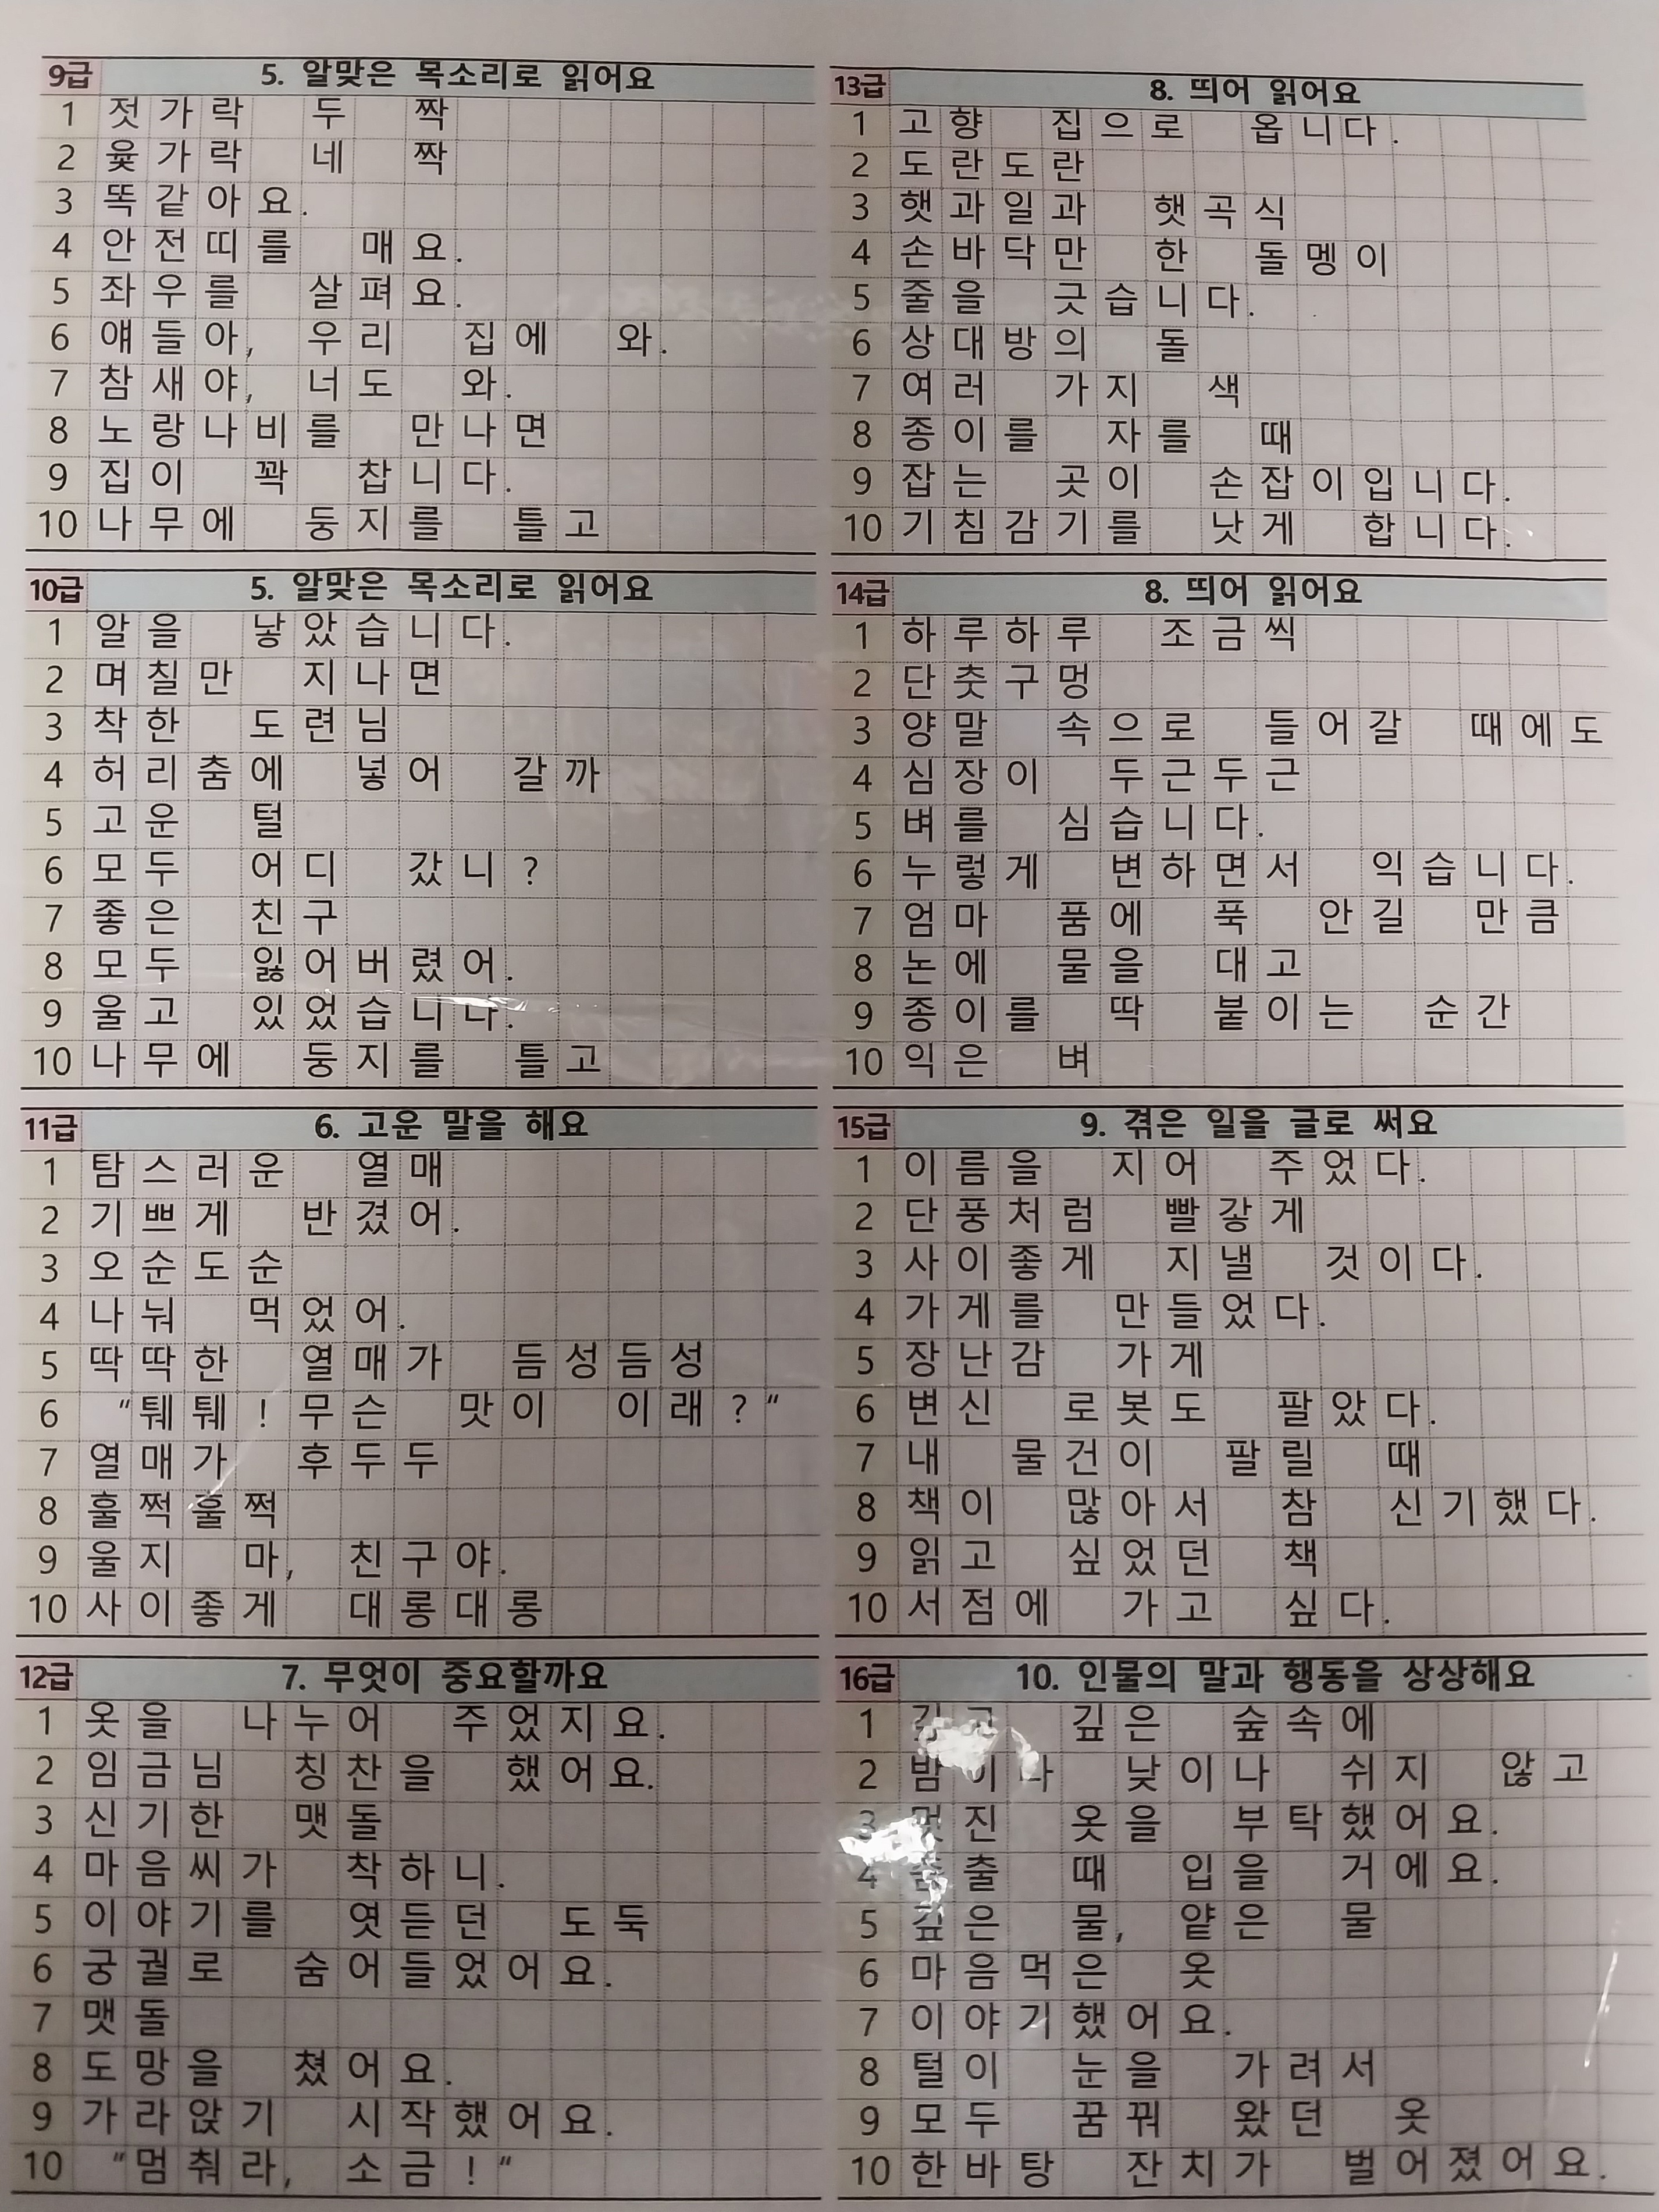 9급 5. 알맞은 목소리로 읽어요
1 젓가락 두 짝
2 윷가락 네 짝
3 똑같아요.
4 안전띠를 매요.
5 좌우를 살펴요.
6 얘들아, 우리 집에 와.
7 참새야, 너도 와.
8 노랑나비를 만나면
9 집이 꽉 찹니다.
10 나무에 둥지를 틀고
10급 5. 알맞은 목소리로 읽어요
1 알을 낳았습니다.
2 며칠만 지나면
3 착한 도련님
4 허리춤에 넣어 갈까
5 고운 털
6 모두 어디 갔니?
7 좋은 친구
8 모두 잃어버렸어.
9 울고 있었습니다.
10 나무에 둥지를 틀고
11급 6. 고운 말을 해요
1 탐스러운 열매
2 기쁘게 반겼어.
3 오순도순
4 나눠 먹었어.
5 딱딱한 열매가 듬성듬성
6 “퉤퉤! 무슨 맛이 이래?“
7 열매가 후두두
8 훌쩍훌쩍
9 울지 마, 친구야.
10 사이좋게 대롱대롱
12급 7. 무엇이 중요할까요
1 옷을 나누어 주었지요.
2 임금님 칭찬을 했어요.
3 신기한 맷돌
4 마음씨가 착하니.
5 이야기를 엿듣던 도둑
6 궁궐로 숨어들었어요.
7 맷돌
8 도망을 쳤어요.
9 가라앉기 시작했어요.
10 “멈춰라, 소금!“
13급 8. 띄어 읽어요
1 고향 집으로 옵니다.
2 도란도란
3 햇과일과 햇곡식
4 손바닥만 한 돌멩이
5 줄을 긋습니다.
6 상대방의 돌
7 여러 가지 색
8 종이를 자를 때
9 잡는 곳이 손잡이입니다.
10 기침감기를 낫게 합니다.
14급 8. 띄어 읽어요
1 하루하루 조금씩
2 단춧구멍
3 양말 속으로 들어갈 때에도
4 심장이 두근두근
5 벼를 심습니다.
6 누렇게 변하면서 익습니다.
7 엄마 품에 푹 안길 만큼
8 논에 물을 대고
9 종이를 딱 붙이는 순간
10 익은 벼
15급 9. 겪은 일을 글로 써요
1 이름을 지어 주었다.
2 단풍처럼 빨갛게
3 사이좋게 지낼 것이다.
4 가게를 만들었다.
5 장난감 가게
6 변신 로봇도 팔았다.
7 내 물건이 팔릴 때
8 책이 많아서 참 신기했다.
9 읽고 싶었던 책
10 서점에 가고 싶다.
16급 10. 인물의 말과 행동을 상상해요
1 깊은 숲속에
2 밤이나 낮이나 쉬지 않고
3 멋진 옷을 부탁했어요.
4 춤출 때 입을 거에요.
5 깊은 물, 얕은 물
6 마음먹은 옷
7 이야기했어요.
8 털이 눈을 가려서
9 모두 꿈꿔 왔던 옷
10 한바탕 잔치가 벌어졌어요.